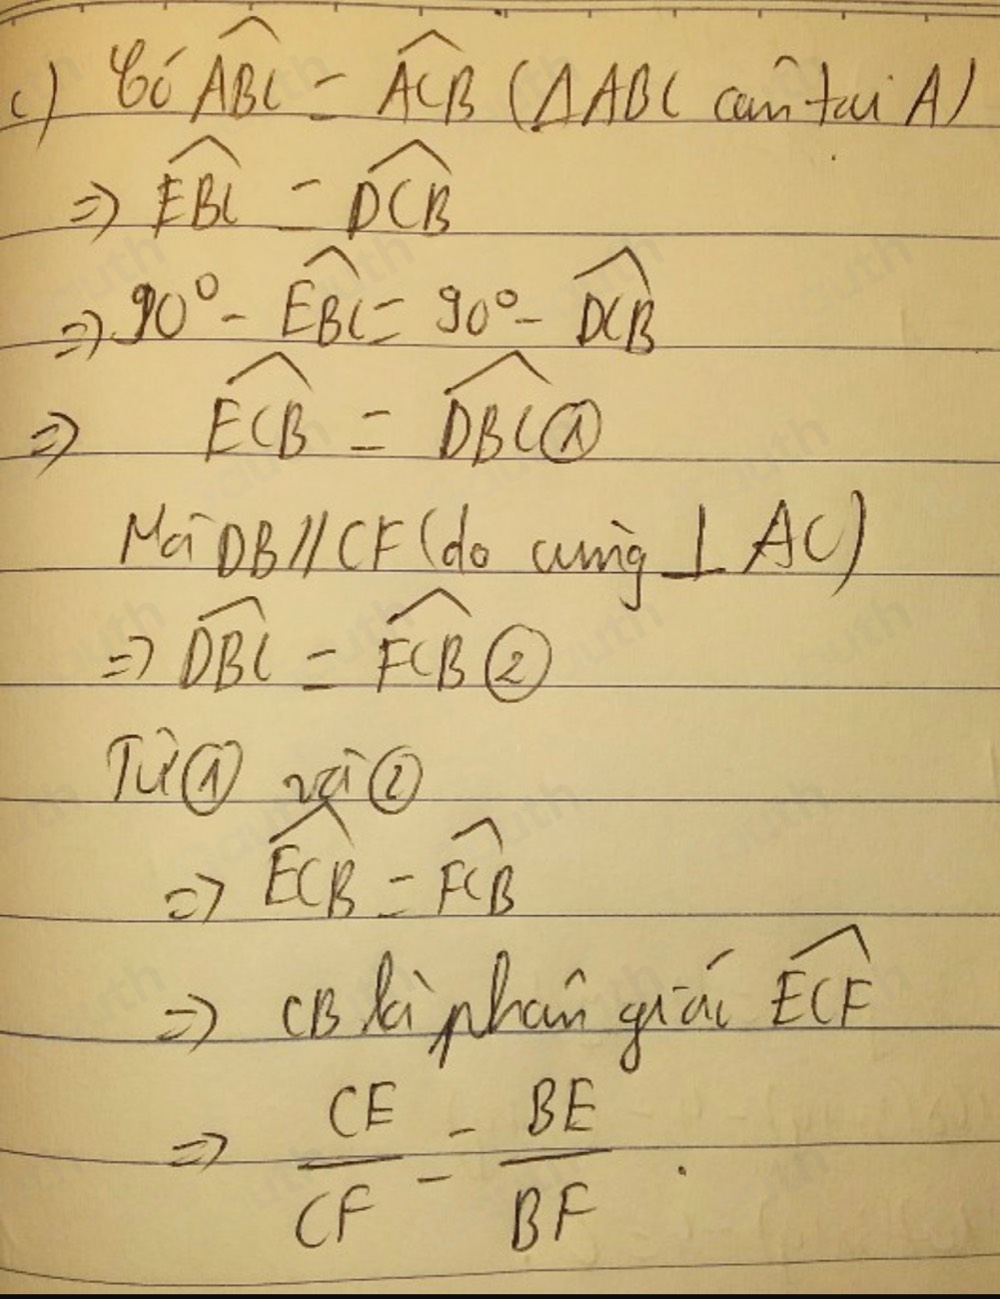 c) Có $\widehat{ABC} = \widehat{ACB}$ (ΔABC cân tại A)
⇒ $\widehat{EBC} = \widehat{DCB}$
⇒ 90° - $\widehat{EBC}$ = 90° - $\widehat{DCB}$
⇒ $\widehat{ECB} = \widehat{DBC}$ ①
Mà DB // CF (do cùng ⊥ AC)
⇒ $\widehat{DBC} = \widehat{FCB}$ ②
Từ ① và ②
⇒ $\widehat{ECB} = \widehat{FCB}$
⇒ CB là phân giác $\widehat{ECF}$
⇒ $\frac{CE}{CF} = \frac{BE}{BF}$.